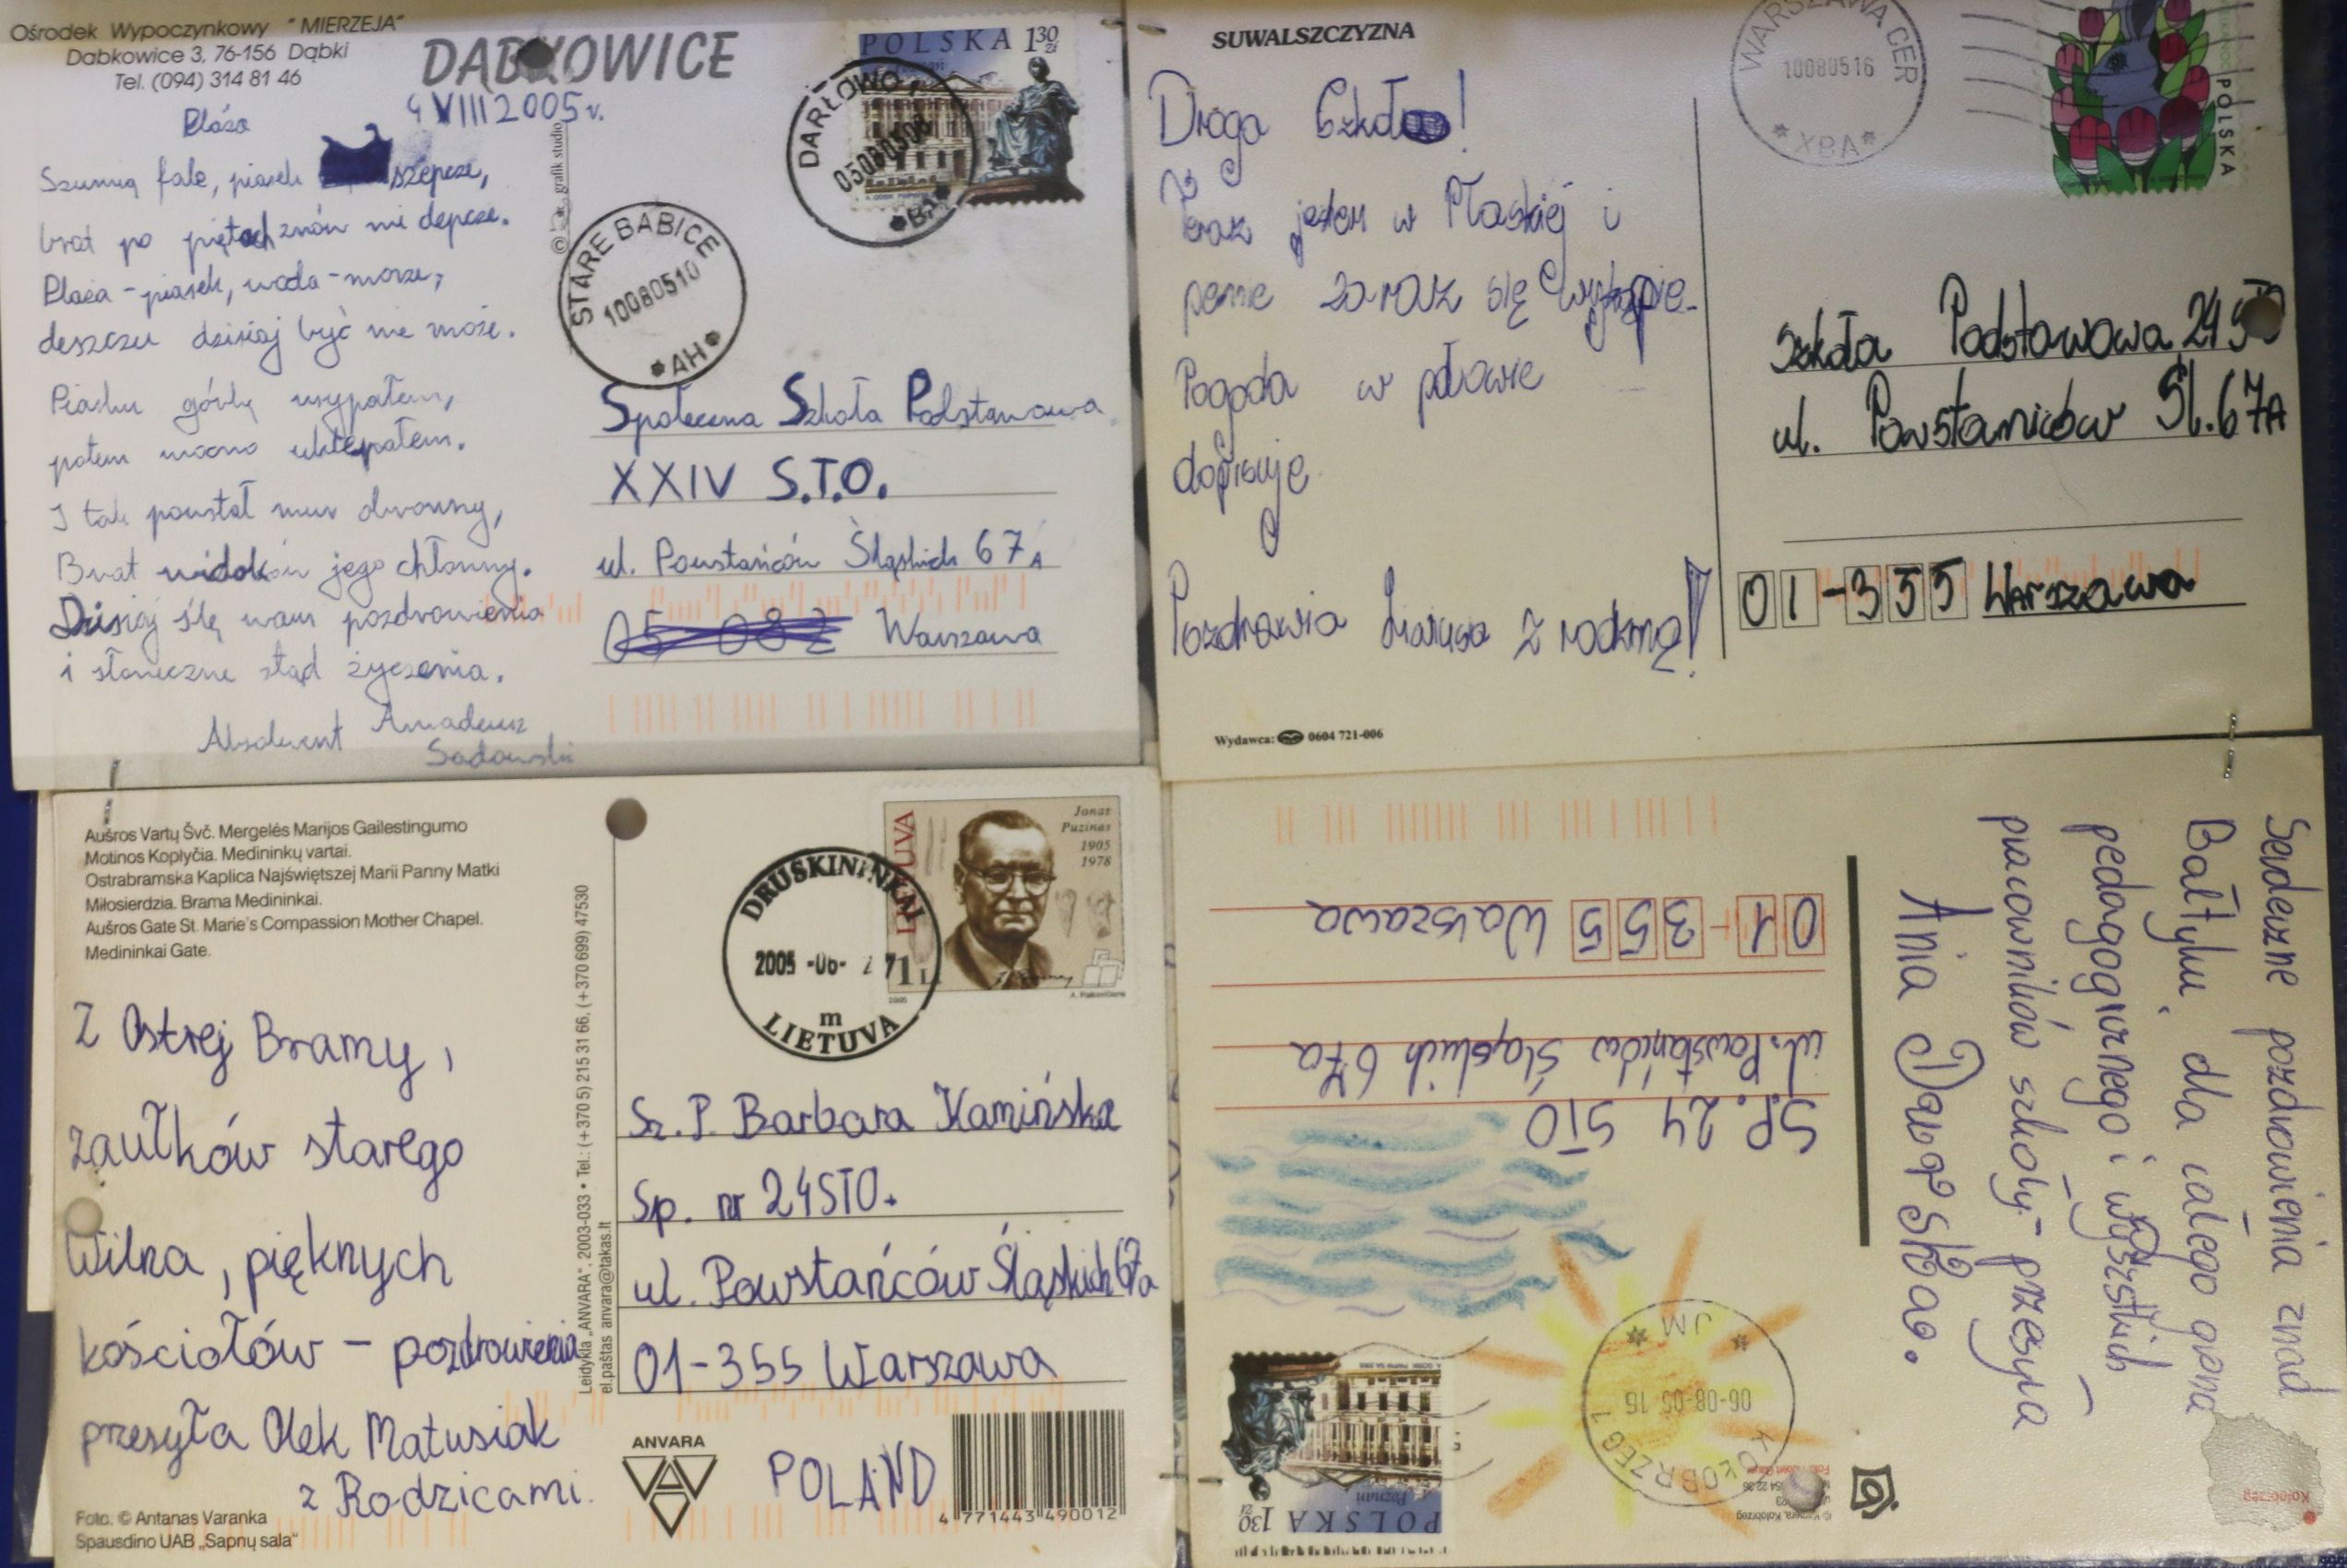 Ośrodek Wypoczynkowy "MIERZEJA"
Dąbkowice 3, 76-156 Dąbki
Tel. (094) 314 81 46
DĄBKOWICE
4 VIII 2005r.
Plaża
Szumią fale, piasek szepcze,
brat po piętach znów mi depcze.
Plaża - piasek, woda - morze,
deszczu dzisiaj być nie może.
Piasku górkę usypałem,
potem mocno uklepałem.
I tak powstał mur obronny,
Brat widoków jego chłonny.
Dzisiaj ślę wam pozdrowienia
i słoneczne stąd życzenia.
Absolwent Amadeusz
Sadowski
grafik studio
POLSKA 1 30 zł
Poznań
DARŁOWO 1
STARE BABICE
1008051 0
*AH*
Społeczna Szkoła Podstawowa
XXIV S.T.O.
ul. Powstańców Śląskich 67A
05-082 Warszawa
SUWALSZCZYZNA
Droga Szkoło!
Teraz jestem w Płaskiej i
pewnie zaraz się wykąpie.
Pogoda w połowie
dopisuje.
Pozdrawia z rodziną!
Wydawca: 0604 721-006
WARSZAWA CER
10080516
*XBA*
POLSKA
Szkoła Podstawowa 24
ul. Powstańców Śl. 67A
01-355 Warszawa
Aušros Vartų Švč. Mergelės Marijos Gailestingumo
Motinos Koplyčia. Medininkų vartai.
Ostrabramska Kaplica Najświętszej Marii Panny Matki
Miłosierdzia. Brama Medininkai.
Aušros Gate St. Marie's Compassion Mother Chapel.
Medininkai Gate.
Z Ostrej Bramy,
zaułków starego
Wilna, pięknych
kościołów - pozdrowienia
przesyła Olek Matusiak
z Rodzicami.
Foto. © Antanas Varanka
Spausdino UAB „Sapnų sala"
Leidykla „ANVARA", 2003-033 • Tel.: (+370 5) 215 31 66, (+370 699) 47530
el.paštas anvara@takas.lt
DRUSKININKAI
2005 -06- 27
m
LIETUVA
LIETUVA
Jonas
Puzinas
1905
1978
1 L
2005
Sz. P. Barbara Kamińska
Sp. nr 24STO.
ul. Powstańców Śląskich 67a
01-355 Warszawa
ANVARA
POLAND
4 771443 490012
Serdeczne pozdrowienia znad
Bałtyku dla całego grona
pedagogicznego i wszystkich
pracowników szkoły przesyła
Ania
SP. 24 STO
ul. Powstańców Śląskich 67a
01-355 Warszawa
KOŁOBRZEG 1
06-08-05 15
* JM *
POLSKA 1 30 zł
Poznań
Kołobrzeg